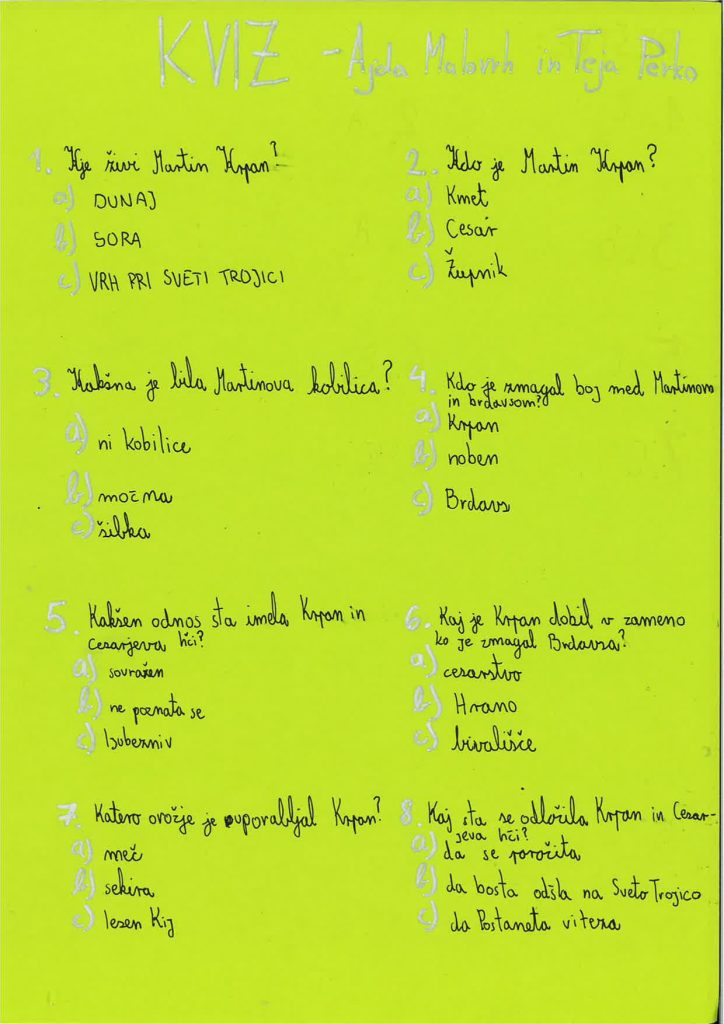 KVIZ - Ajda Malovrh in Teja Perko
1. Kje živi Martin Krpan?
a) DUNAJ
b) SORA
c) VRH PRI SVETI TROJICI
2. Kdo je Martin Krpan?
a) Kmet
b) Cesar
c) Župnik
3. Kakšna je bila Martinova kobilica?
a) ni kobilice
b) močna
c) šibka
4. Kdo je zmagal boj med Martinom
in brdavsom?
a) Krpan
b) noben
c) Brdavs
5. Kakšen odnos sta imela Krpan in
cesarjeva hči?
a) sovražen
b) ne poznata se
c) ljubezniv
6. Kaj je Krpan dobil v zameno
ko je zmagal Brdavsa?
a) cesarstvo
b) Hrano
c) bivališče
7. Katero orožje je uporabljal Krpan?
a) meč
b) sekira
c) lesen Kij
8. Kaj sta se odločila Krpan in Cesar-
jeva hči?
a) da se poročita
b) da bosta odšla na Sveto Trojico
c) da Postaneta viteza